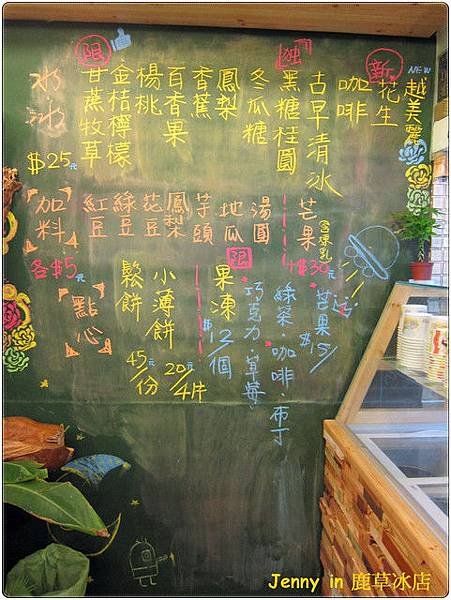 冰冰
$25元
限
甘蔗牧草
金桔檸檬
楊桃
百香果
香蕉
鳳梨
冬瓜糖
独
黑糖桂圓
古早清冰
咖啡
新
花生
越美麗
NEW
加料
各$5元
紅豆
綠豆
花豆
鳳梨
芋頭
地瓜
湯圓
芒果
含煉乳
$30元
點心
鬆餅
45元/份
小薄餅
20元/4片
限
果凍
$12/個
巧克力.草莓.
綠茶.咖啡.布丁
芒果
$15/
Jenny in 鹿草冰店